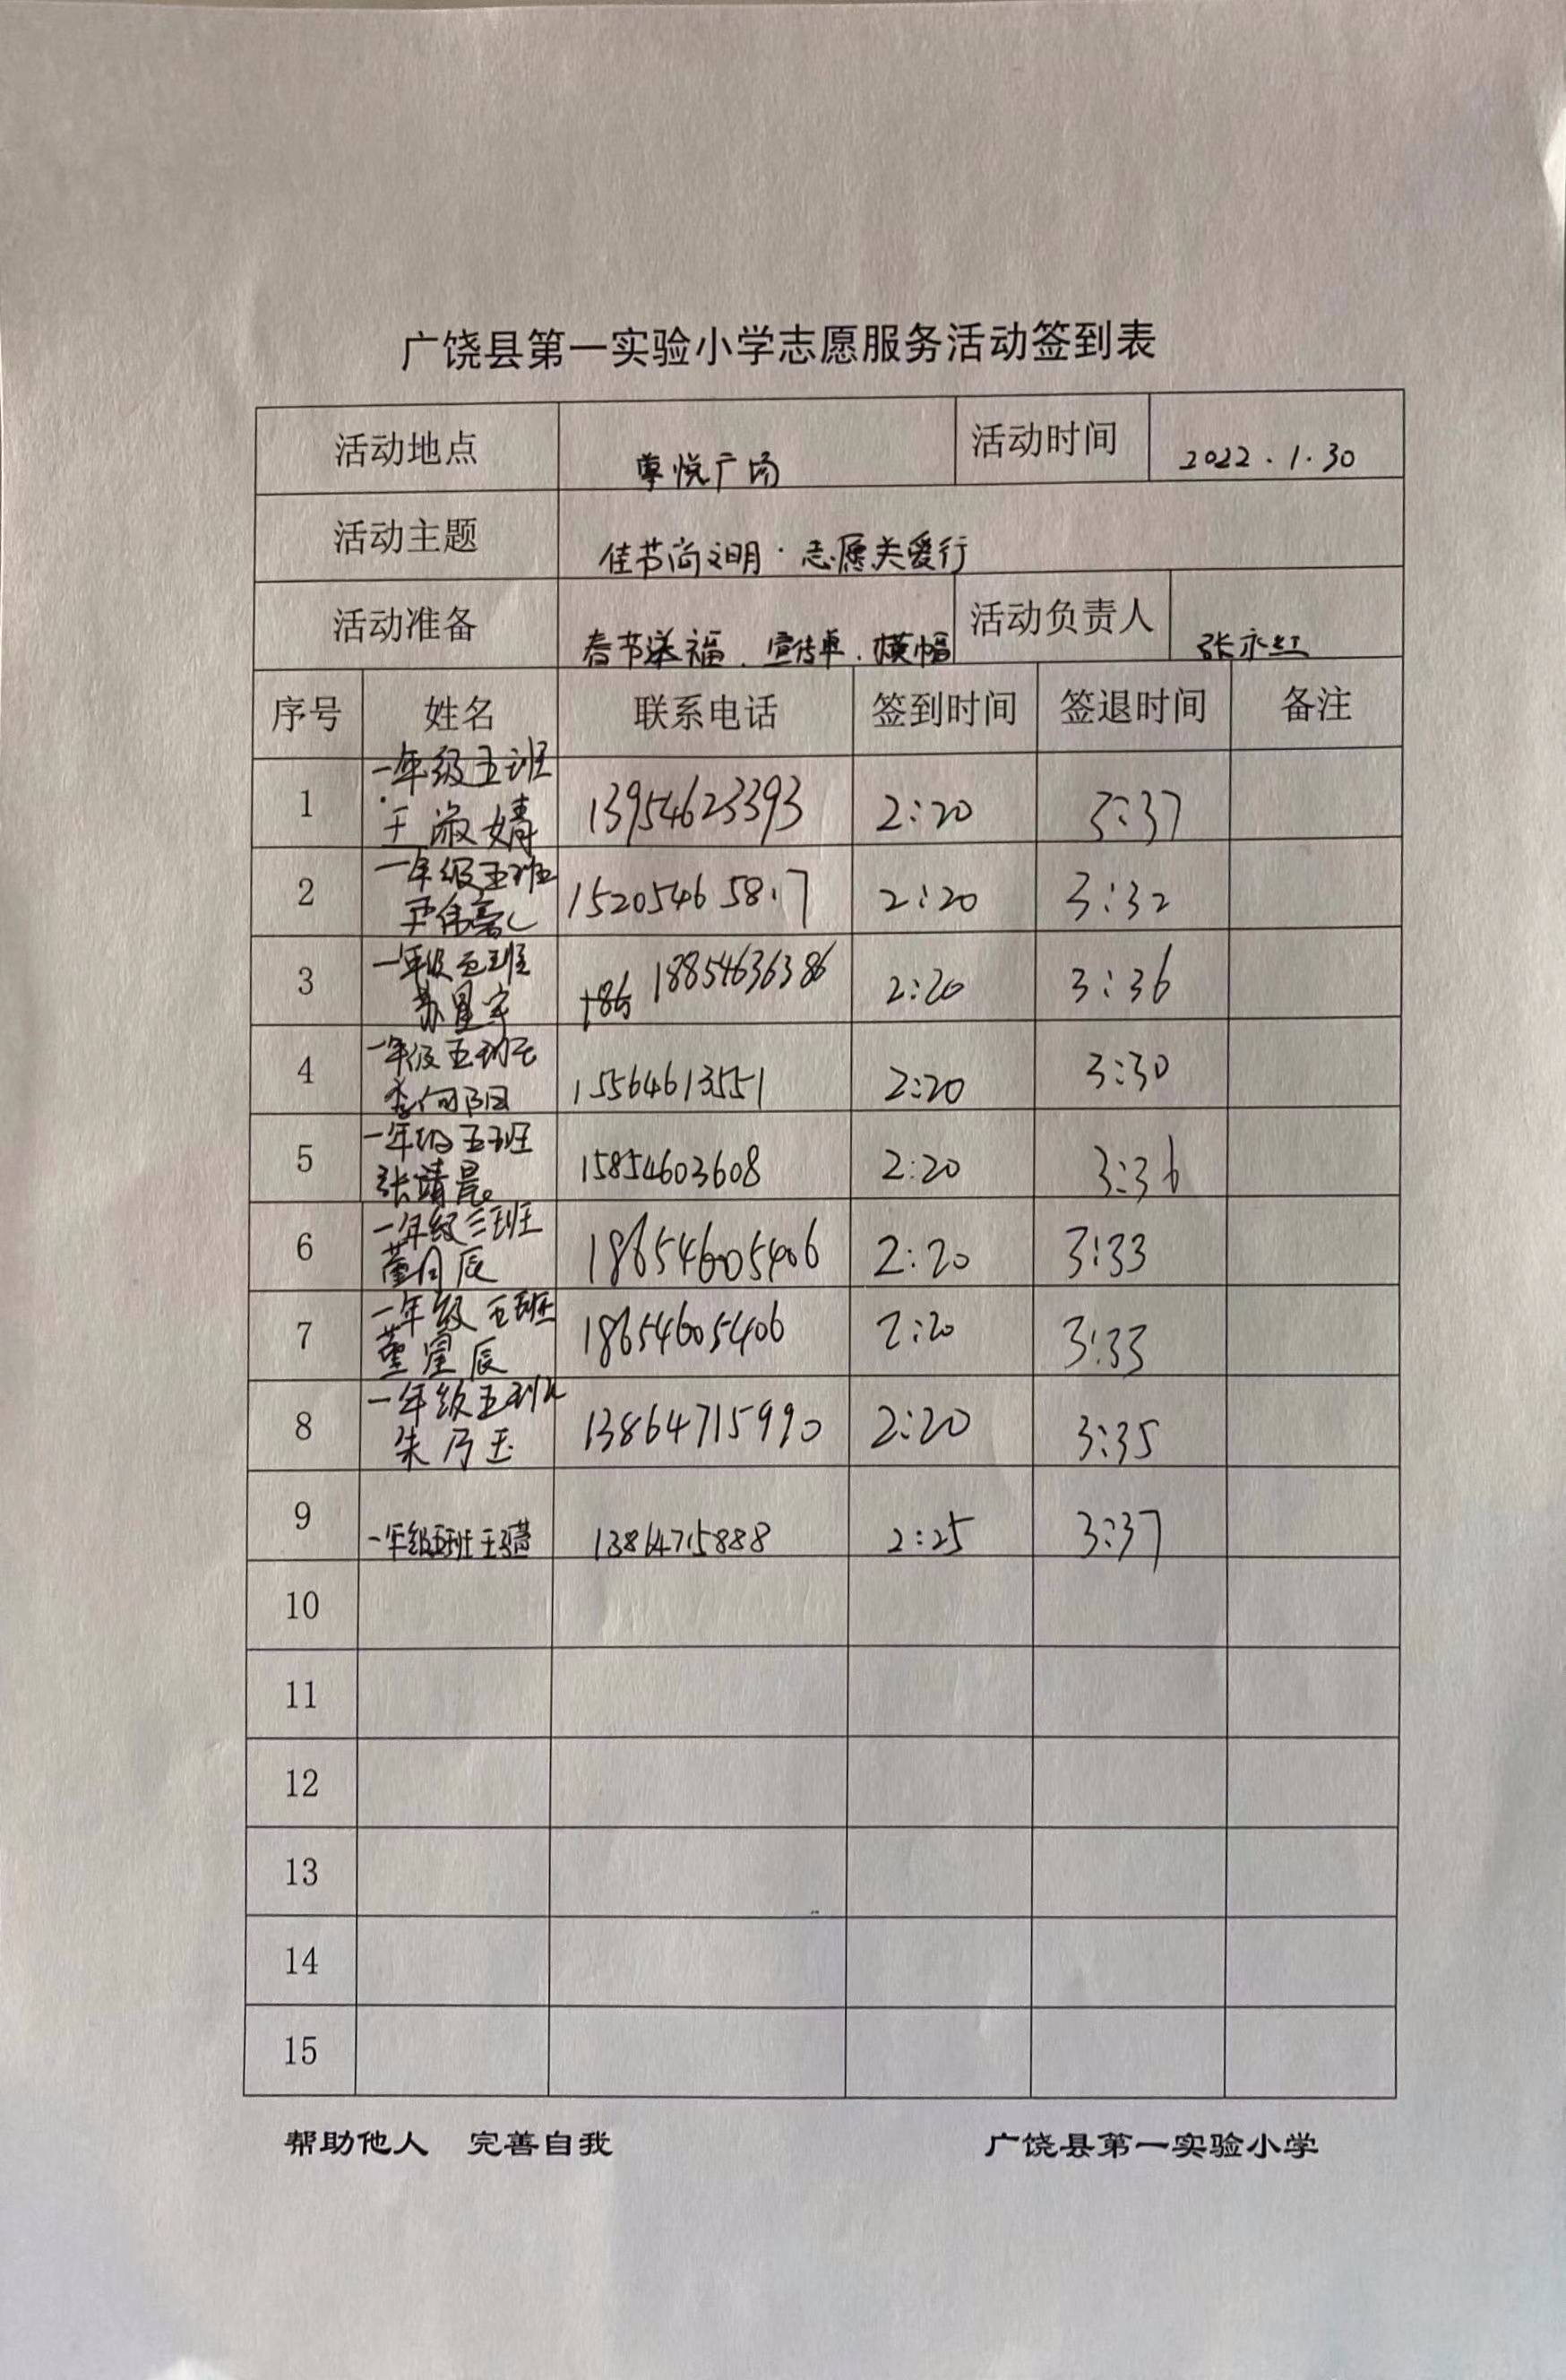 广饶县第一实验小学志愿服务活动签到表
活动地点 尊悦广场 活动时间 2022.1.30
活动主题 佳节尚文明·志愿关爱行
活动准备 春节送福、宣传单、横幅 活动负责人 张永红
序号 姓名 联系电话 签到时间 签退时间 备注
一年级五班
1 王淑婧 13954623393 2:20 3:37
一年级五班
2 15205465817 2:20 3:32
一年级五班
3 苏星宇 +86 18854636386 2:20 3:36
一年级五班
4 李向阳 15564613551 2:20 3:30
一年级五班
5 张靖晨 15854603608 2:20 3:36
一年级三班
6 董月辰 18654605406 2:20 3:33
一年级五班
7 董星辰 18654605406 2:20 3:33
一年级五班
8 朱乃玉 13864715990 2:20 3:35
9 一年级五班 王 13864715888 2:25 3:37
10
11
12
13
14
15
帮助他人 完善自我 广饶县第一实验小学